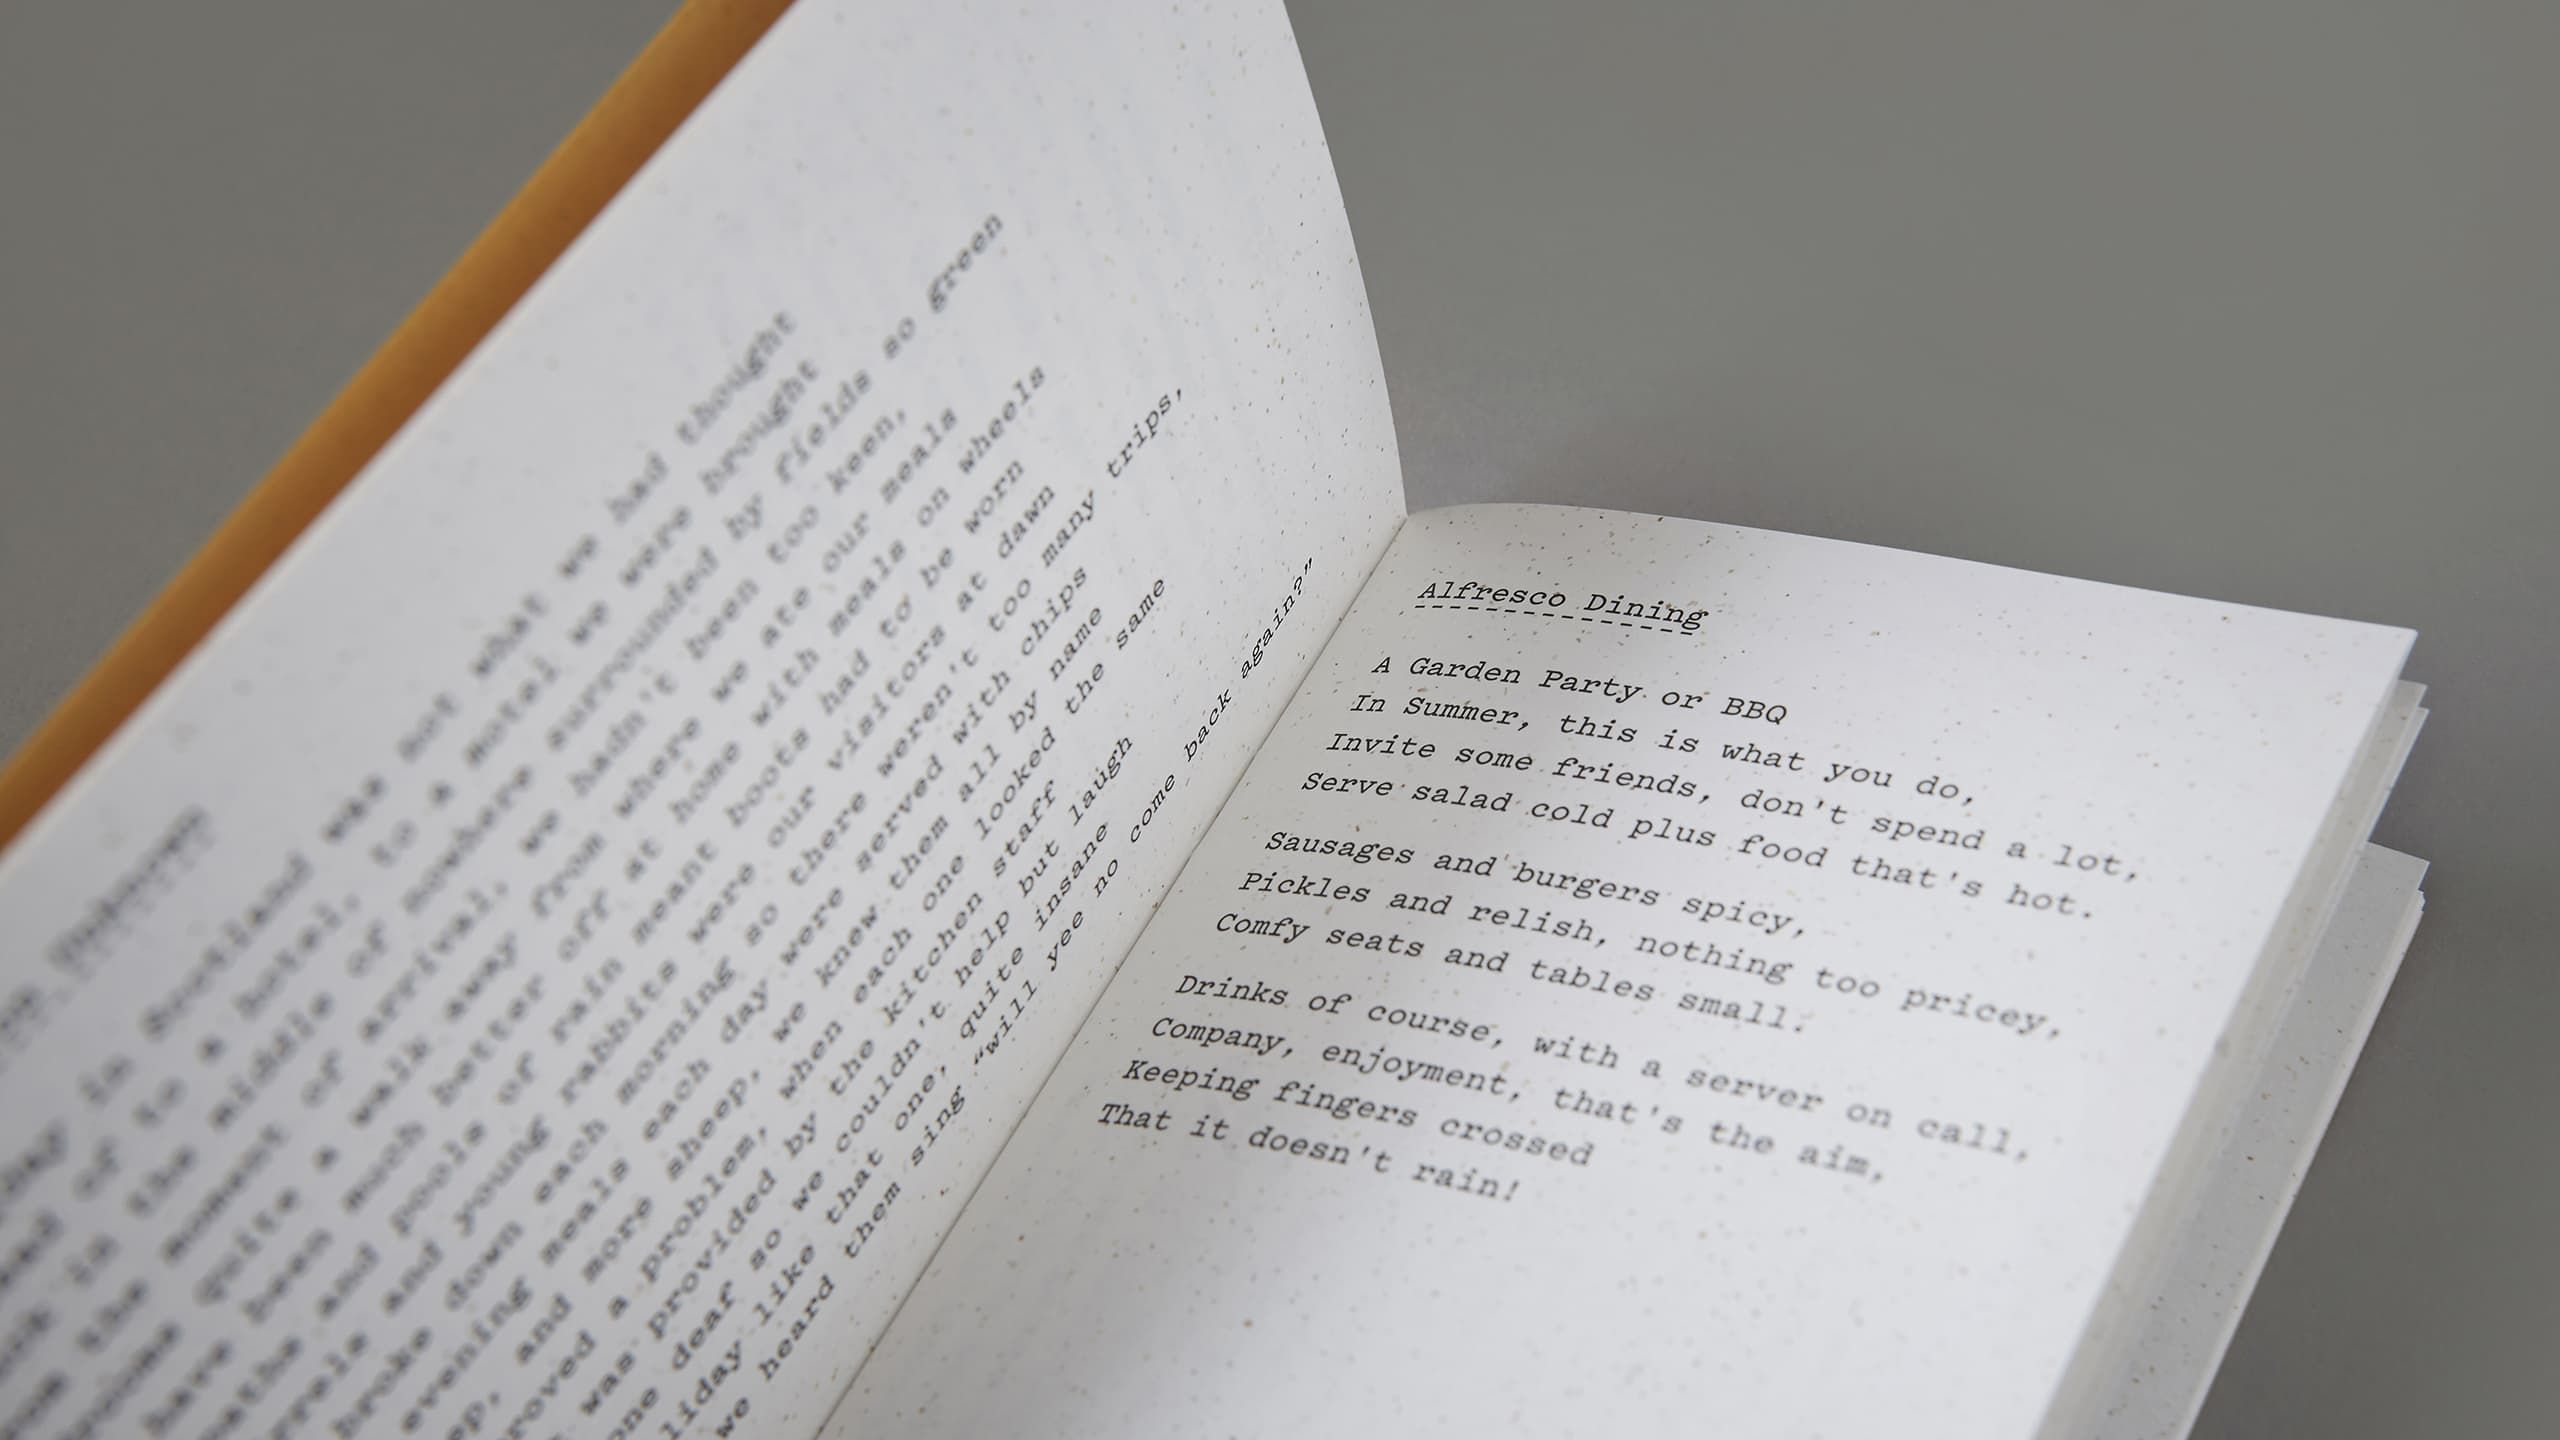 in Scotland was not what we had thought
of to a hotel, to a motel we were brought
in the middle of nowhere surrounded by fields so green
the moment of arrival, we hadn't been too keen,
quite a walk away from where we ate our meals
have been much better off at home with meals on wheels
and pools of rain meant boots had to be worn
and young rabbits were our visitors at dawn
broke down each morning so there weren't too many trips,
evening meals each day were served with chips
and more sheep, we knew them all by name
a problem, when each one looked the same
was provided by the kitchen staff
one deaf so we couldn't help but laugh
like that one, quite insane
we heard them sing “will yee no come back again?”
Alfresco Dining
A Garden Party or BBQ
In Summer, this is what you do,
Invite some friends, don't spend a lot,
Serve salad cold plus food that's hot.
Sausages and burgers spicy,
Pickles and relish, nothing too pricey,
Comfy seats and tables small.
Drinks of course, with a server on call,
Company, enjoyment, that's the aim,
Keeping fingers crossed
That it doesn't rain!